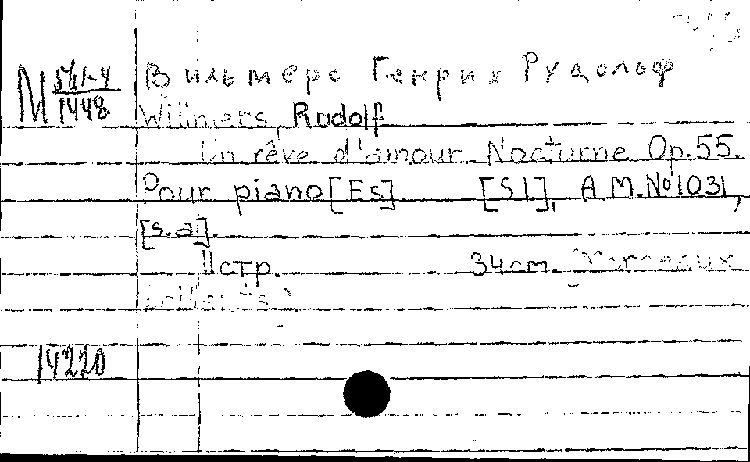 М 541-4/1448
Вильмерс Генрих Рудольф
Willmers, Rudolf
Un rêve d'amour. Nocturne Op.55.
Pour piano [Es] [S l], A.M.№1031,
[s.a].
11 стр. 34 cm. Morceaux
14220